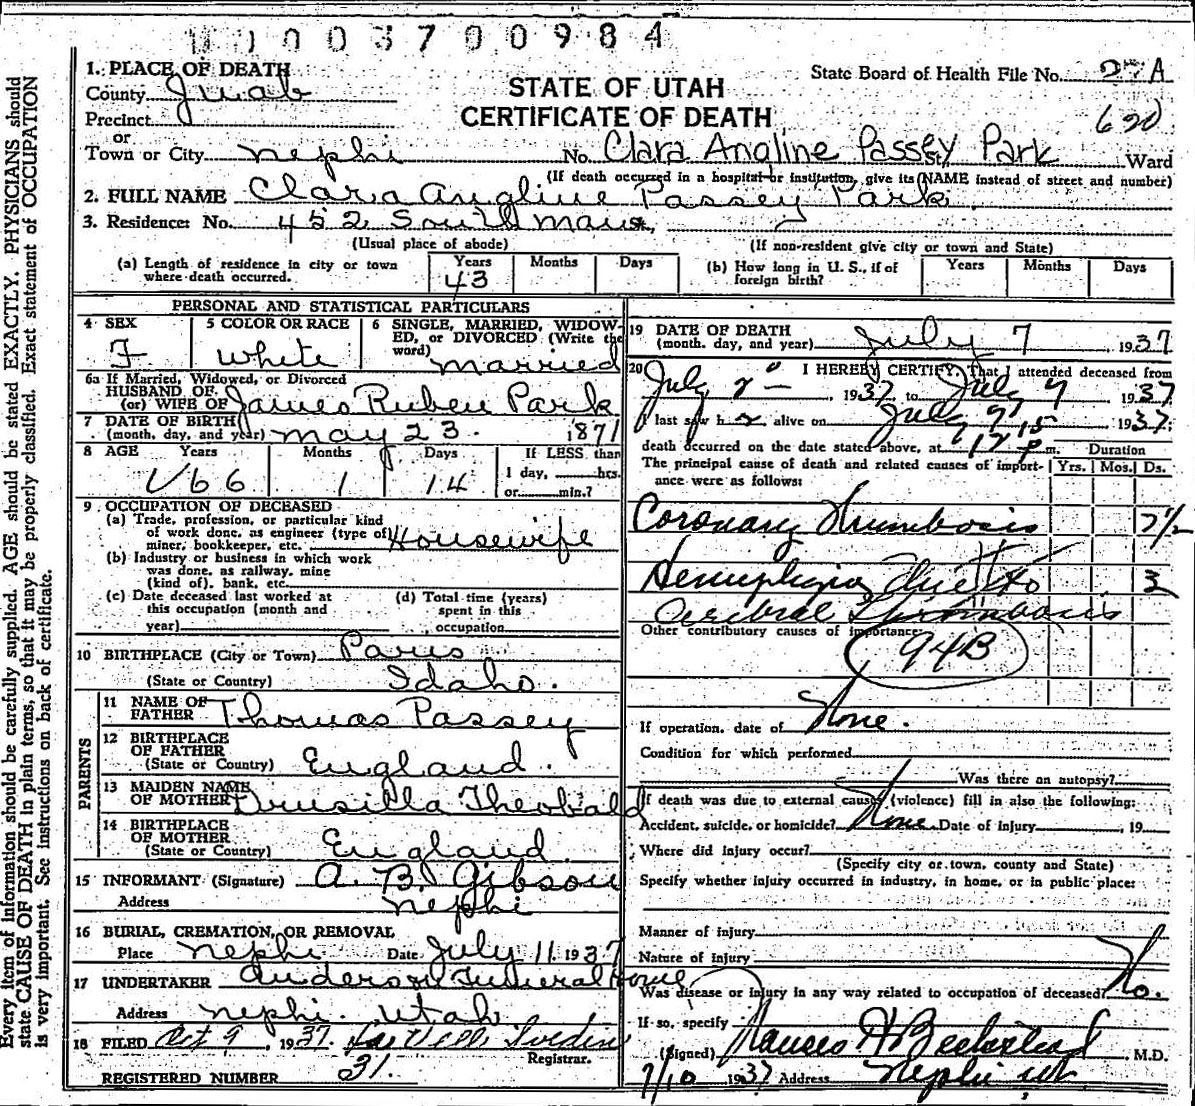 1003700984
1. PLACE OF DEATH
County Juab
STATE OF UTAH
CERTIFICATE OF DEATH
State Board of Health File No. 27A
620
Precinct
or
Town or City Nephi No. Clara Angline Passey Park St. Ward
(If death occurred in a hospital or institution, give its NAME instead of street and number)
2. FULL NAME Clara Angline Passey Park
3. Residence: No. 452 South Main,
(Usual place of abode) (If non-resident give city or town and State)
(a) Length of residence in city or town where death occurred. Years 43 Months Days (b) How long in U. S., if of foreign birth? Years Months Days
PERSONAL AND STATISTICAL PARTICULARS
4 SEX F
5 COLOR OR RACE White
6 SINGLE, MARRIED, WIDOWED, or DIVORCED (Write the word) married
6a If Married, Widowed, or Divorced
HUSBAND OF
(or) WIFE OF James Ruben Park
7 DATE OF BIRTH
(month, day, and year) May 23 1871
8 AGE Years 66 Months 1 Days 14 If LESS than
1 day, hrs.
or min.?
9 OCCUPATION OF DECEASED
(a) Trade, profession, or particular kind
of work done, as engineer (type of)
miner, bookkeeper, etc. Housewife
(b) Industry or business in which work
was done, as railway, mine
(kind of), bank, etc.
(c) Date deceased last worked at
this occupation (month and
year)
(d) Total time (years)
spent in this
occupation
10 BIRTHPLACE (City or Town) Paris
(State or Country) Idaho.
PARENTS
11 NAME OF
FATHER Thomas Passey
12 BIRTHPLACE
OF FATHER
(State or Country) England.
13 MAIDEN NAME
OF MOTHER Drusilla Theobald
14 BIRTHPLACE
OF MOTHER
(State or Country) England.
15 INFORMANT (Signature) A. B. Gibson
Address Nephi
16 BURIAL, CREMATION, OR REMOVAL
Place Nephi Date July 11 1937
17 UNDERTAKER Anderson Funeral Home
Address Nephi Utah
18 FILED Oct 9, 1937.
Registrar.
REGISTERED NUMBER 31.
19 DATE OF DEATH
(month, day, and year) July 7, 1937
20 I HEREBY CERTIFY, That I attended deceased from
July 1937, to July 7 1937
I last saw h alive on July 1937;
death occurred on the date stated above, at m. Duration
The principal cause of death and related causes of importance were as follows: Yrs. Mos. Ds.
Coronary Thrombosis 7 1/2
Hemiplegia due to 3
Cerebral Thrombosis
Other contributory causes of importance:
94B
If operation, date of None.
Condition for which performed
Was there an autopsy?
If death was due to external causes (violence) fill in also the following:
Accident, suicide, or homicide? None. Date of injury , 19
Where did injury occur?
(Specify city or town, county and State)
Specify whether injury occurred in industry, in home, or in public place:
Manner of injury
Nature of injury
Was disease or injury in any way related to occupation of deceased? No.
If so, specify
(Signed) Beckstead M.D.
7/10 1937 Address Nephi Ut
Every item of information should be carefully supplied. AGE should be stated EXACTLY. PHYSICIANS should
state CAUSE OF DEATH in plain terms, so that it may be properly classified. Exact statement of OCCUPATION
is very important. See instructions on back of certificate.